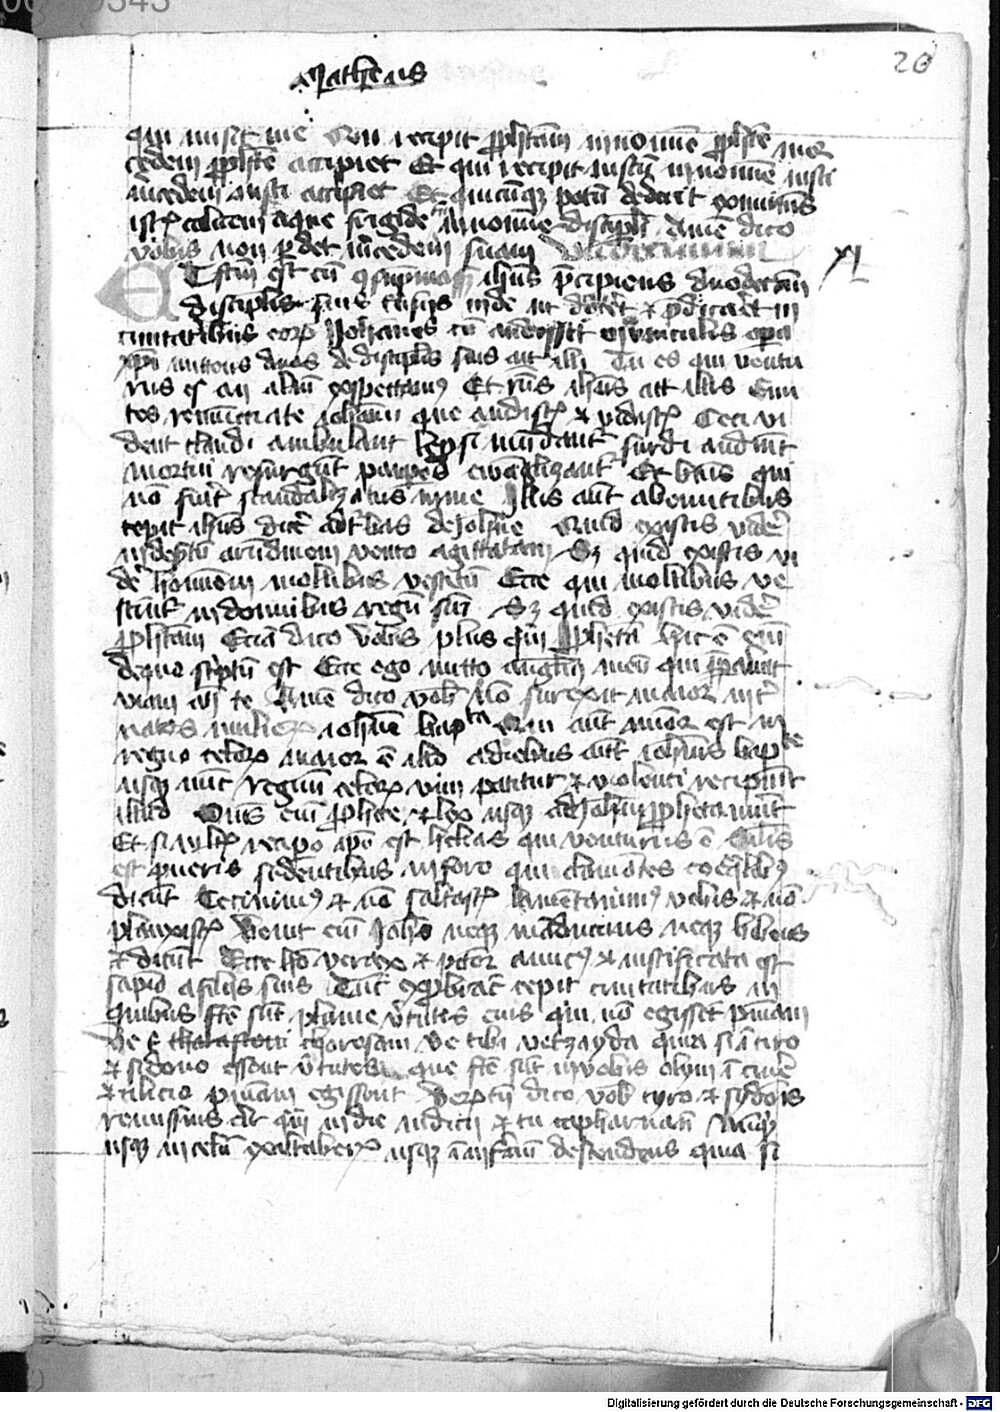 Matheus
20
qui misit me Qui recipit prophetam in nomine prophete mer
cedem prophete accipiet Et qui recipit iustum in nomine iusti
mercedem iusti accipiet Et quicumque potum dederit
calicem aque frigide in nomine discipuli Amen dico
vobis non perdet mercedem suam
XI
Et factum est cum ihesus precipiens duodecim
discipulis suis inde ut doceret et predicaret in
civitatibus eorum Johannes cum in vinculis opera
christi mittens duos de discipulis suis ait illi Tu es qui ventu
rus es an alium expectamus Et ihesus ait illis Eun
tes renunctiate iohanni que audistis et vidistis Ceci vi
dent claudi ambulant leprosi mundantur surdi audiunt
mortui resurgunt pauperes ewangelizantur Et beatus qui
non fuerit scandalizatus in me Illis autem abeuntibus
cepit ihesus dicere ad turbas de Johanne Quid existis videre
in desertum arundinem vento agittatam Sed quid existis vi
dere hominem mollibus vestitum Ecce qui mollibus ve
stiuntur in domibus regum sunt Sed quid existis videre
prophetam Eciam dico vobis plus quam prophetam hic est enim
de quo scriptum est Ecce ego mitto angelum meum qui preparabit
viam ante te Amen dico vobis non surexit maior inter
natos mulierum iohanne baptista Qui autem minor est in
regno celorum maior est illo a diebus autem iohannis baptiste
usque nunc regnum celorum vim patitur et violenti recipiunt
illud Omnes enim prophete et lex usque ad Johannem prophetaverunt
Et si vultis recipere ipse est helias qui venturus est
est pueris sedentibus in foro qui clamantes coequalibus
dicunt Cecinimus et non saltastis lamentavimus vobis et non
planxistis Venit enim Johannes neque manducans neque bibens
et dicunt Ecce homo vorax et potator et iustificata est
sapiencia a filiis suis Tunc exprobrare cepit civitatibus in
quibus facte sunt plurime virtutes eius quia non egissent penitenciam
Ve tibi Ve tibi quia si in tiro
et sidone essent virtutes que facte sunt in vobis olym in cinere
et cilicio penitenciam egissent Verumptamen dico vobis tyro et sydonis
remissius erit quam in die iudicii et tu capharnaum Numquid
usque in celum exaltaberis usque in infernum descendens quia si
Digitalisierung gefördert durch die Deutsche Forschungsgemeinschaft - DFG